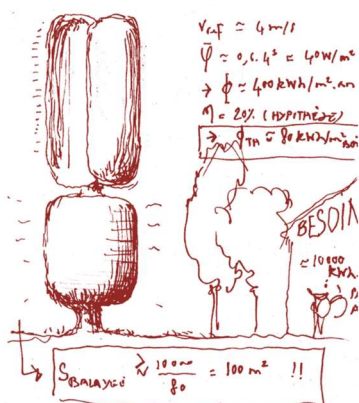 Vref ≈ 4 m/s
≈ 0,6.4³ ≈ 40W/m²
→ ϕ ≈ 400 kWh/m².an
η = 20% (HYPOTHÈSE)
→ ϕTH ≈ 80 kWh/m²
BESOIN
≈ 10000
kWh
SBALAYÉE ≈ 10000/80 = 100 m² !!